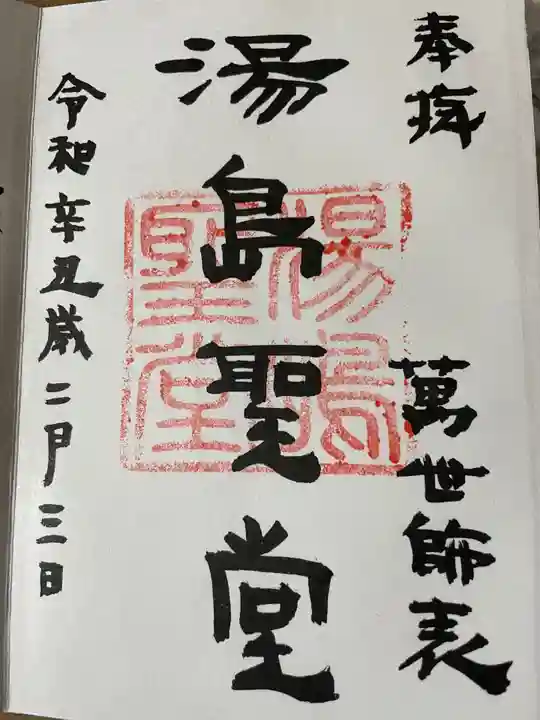 奉拝 萬世師表
湯島聖堂
令和辛丑歳二月三日
湯島聖堂